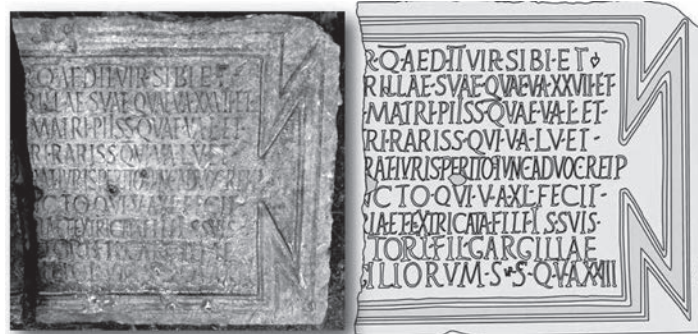 R·Q̅·AED·I̅I̅VIR·SIBI·ET
RILLAE·SVAE·QVAE·VA·XXVII·ET·
MATRI·PIISS·QVAE·VA·L·ET·
RI·RARISS·QVI·VA·LV·ET·
IVRISPERITO ADVOCREIP
CTO·QVI·V·AXL·FECIT·
EXTRICATA·FIL·
TORI·FIL·GARGILLAE
ILIORVM·S·S·Q·VA·XXIII